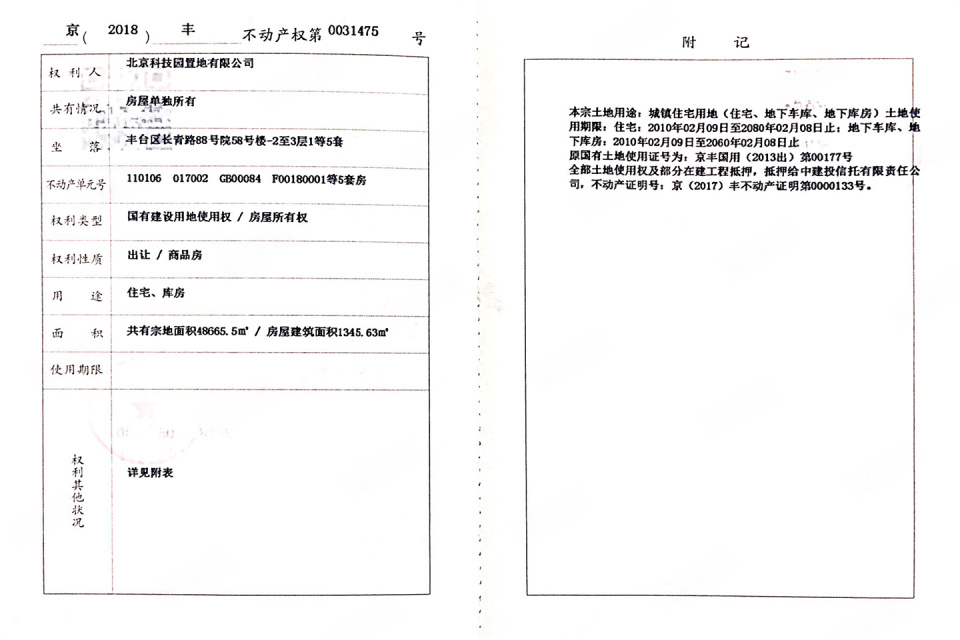 京（2018）丰 不动产权第0031475 号
权利人 北京科技园置地有限公司
共有情况 房屋单独所有
坐落 丰台区长青路88号院58号楼-2至3层1等5套
不动产单元号 110106 017002 GB00084 F00180001等5套房
权利类型 国有建设用地使用权 / 房屋所有权
权利性质 出让 / 商品房
用途 住宅、库房
面积 共有宗地面积48665.5㎡ / 房屋建筑面积1345.63㎡
使用期限
权利其他状况 详见附表
附记
本宗土地用途：城镇住宅用地（住宅、地下车库、地下库房）土地使
用期限：住宅：2010年02月09日至2080年02月08日止；地下车库、地
下库房：2010年02月09日至2060年02月08日止
原国有土地使用证号为：京丰国用（2013出）第00177号
全部土地使用权及部分在建工程抵押，抵押给中建投信托有限责任公
司，不动产证明号：京（2017）丰不动产证明第0000133号。